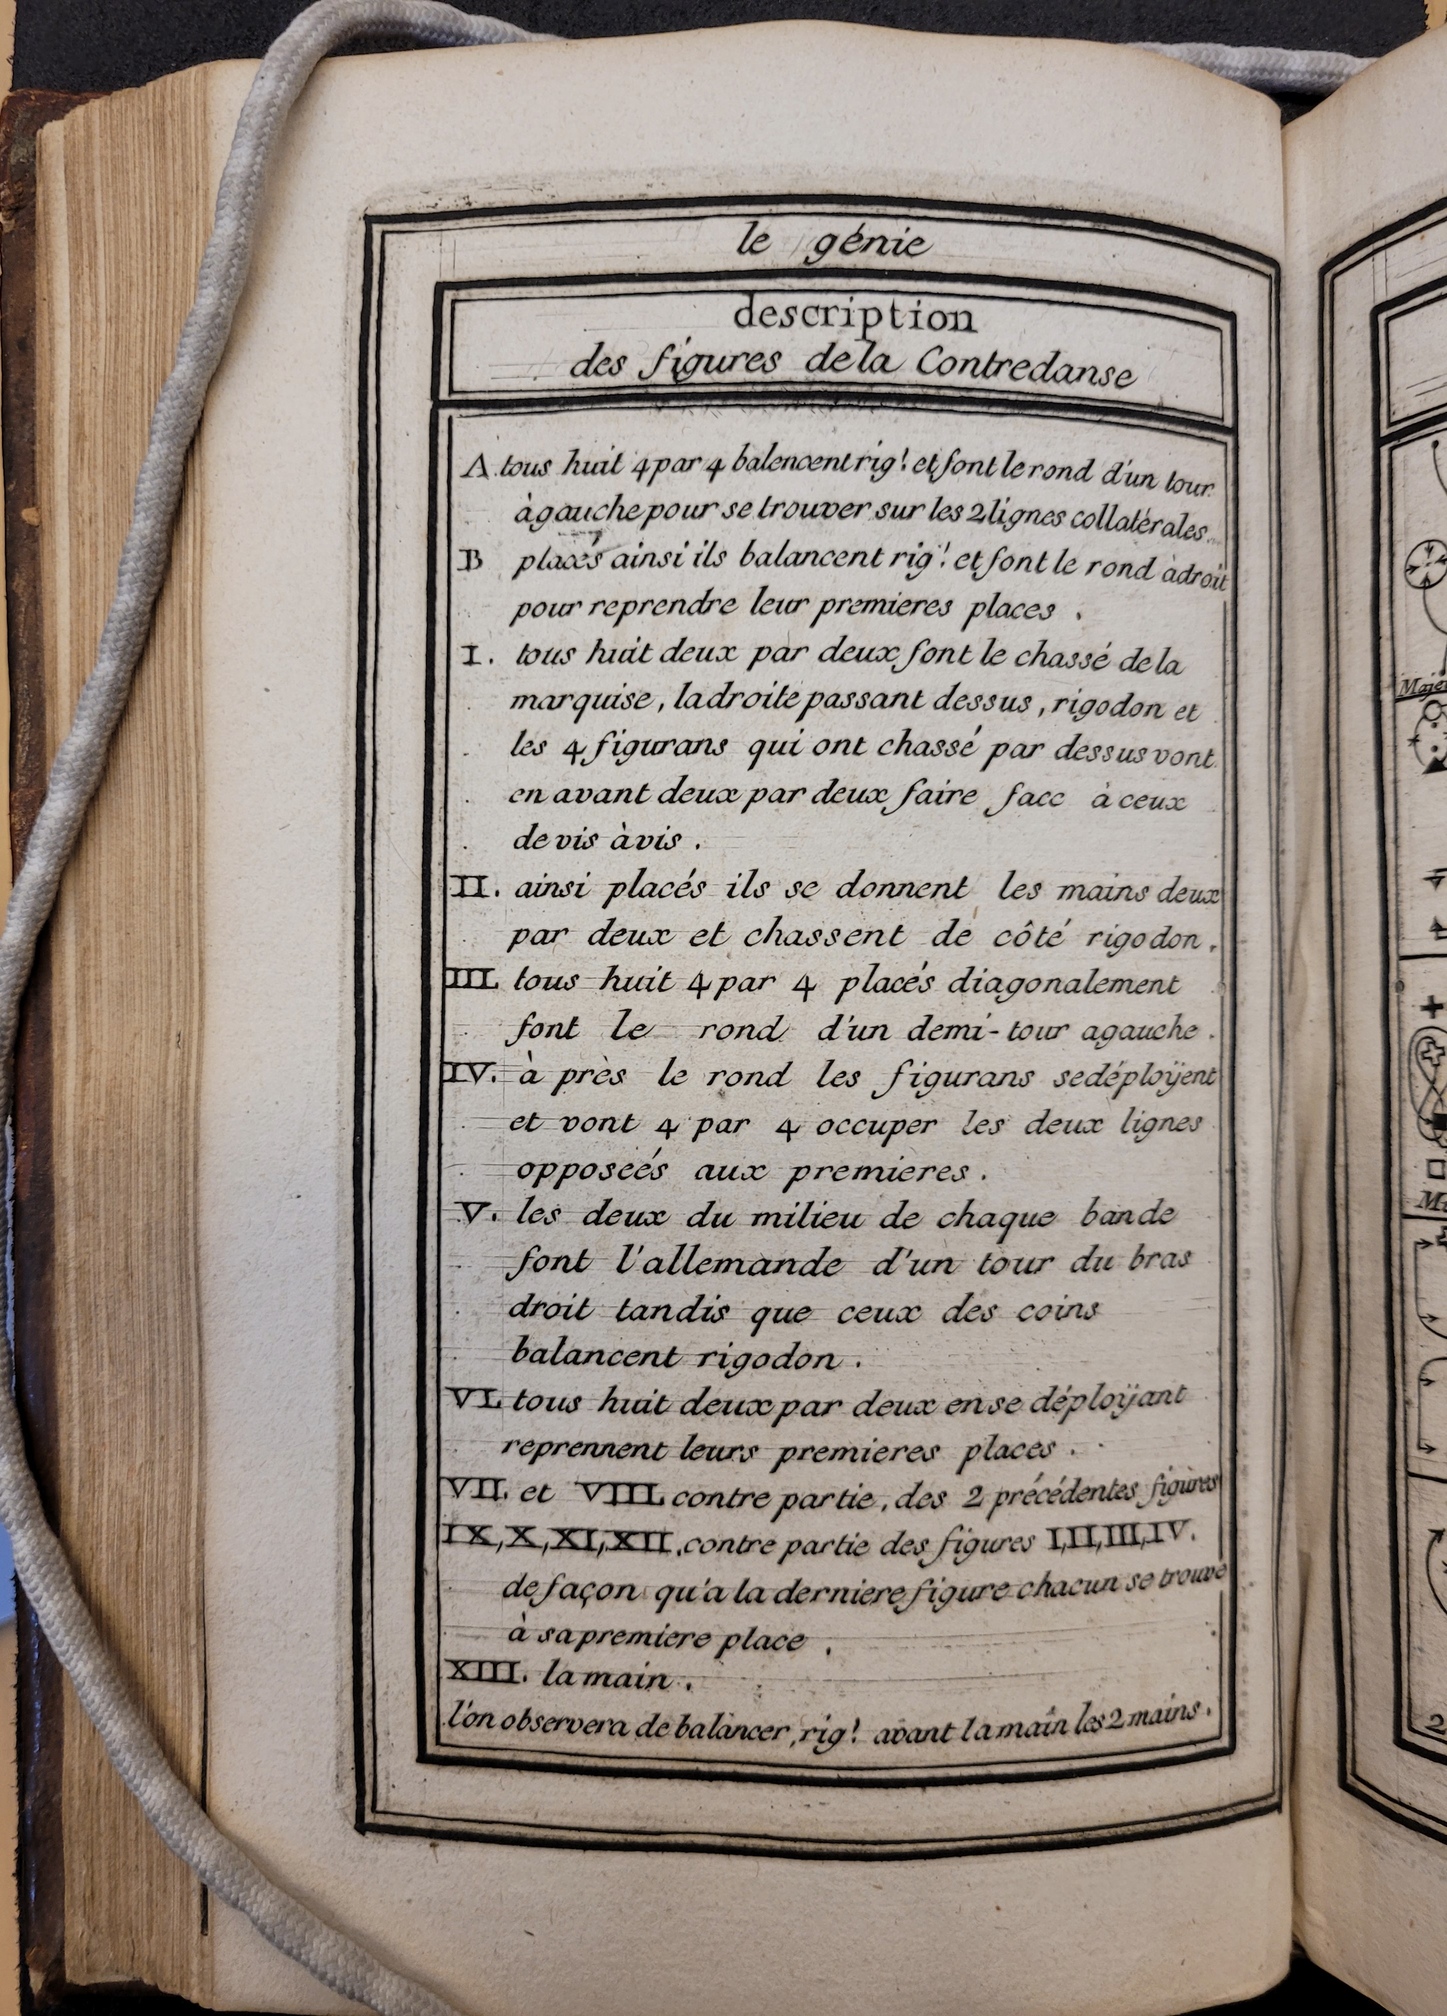 le génie
description
des figures de la Contredanse
A. tous huit 4 par 4 balencent rig! et font le rond d'un tour
à gauche pour se trouver sur les 2 lignes collatérales.
B placés ainsi ils balancent rig! et font le rond à droit
pour reprendre leur premieres places.
I. tous huit deux par deux font le chassé de la
marquise, la droite passant dessus, rigodon et
les 4 figurans qui ont chassé par dessus vont
en avant deux par deux faire face à ceux
de vis à vis.
II. ainsi placés ils se donnent les mains deux
par deux et chassent de côté rigodon.
III. tous huit 4 par 4 placés diagonalement
font le rond d'un demi-tour a gauche.
IV. à près le rond les figurans se déploÿent
et vont 4 par 4 occuper les deux lignes
opposeés aux premieres.
V. les deux du milieu de chaque bande
font l'allemande d'un tour du bras
droit tandis que ceux des coins
balancent rigodon.
VI. tous huit deux par deux en se déploÿant
reprennent leurs premieres places.
VII. et VIII. contre partie, des 2 précédentes figures
IX, X, XI, XII. contre partie des figures I, II, III, IV.
de façon qu'a la derniere figure chacun se trouve
à sa premiere place.
XIII. la main.
l'on observera de balancer, rig! avant la main les 2 mains.
2